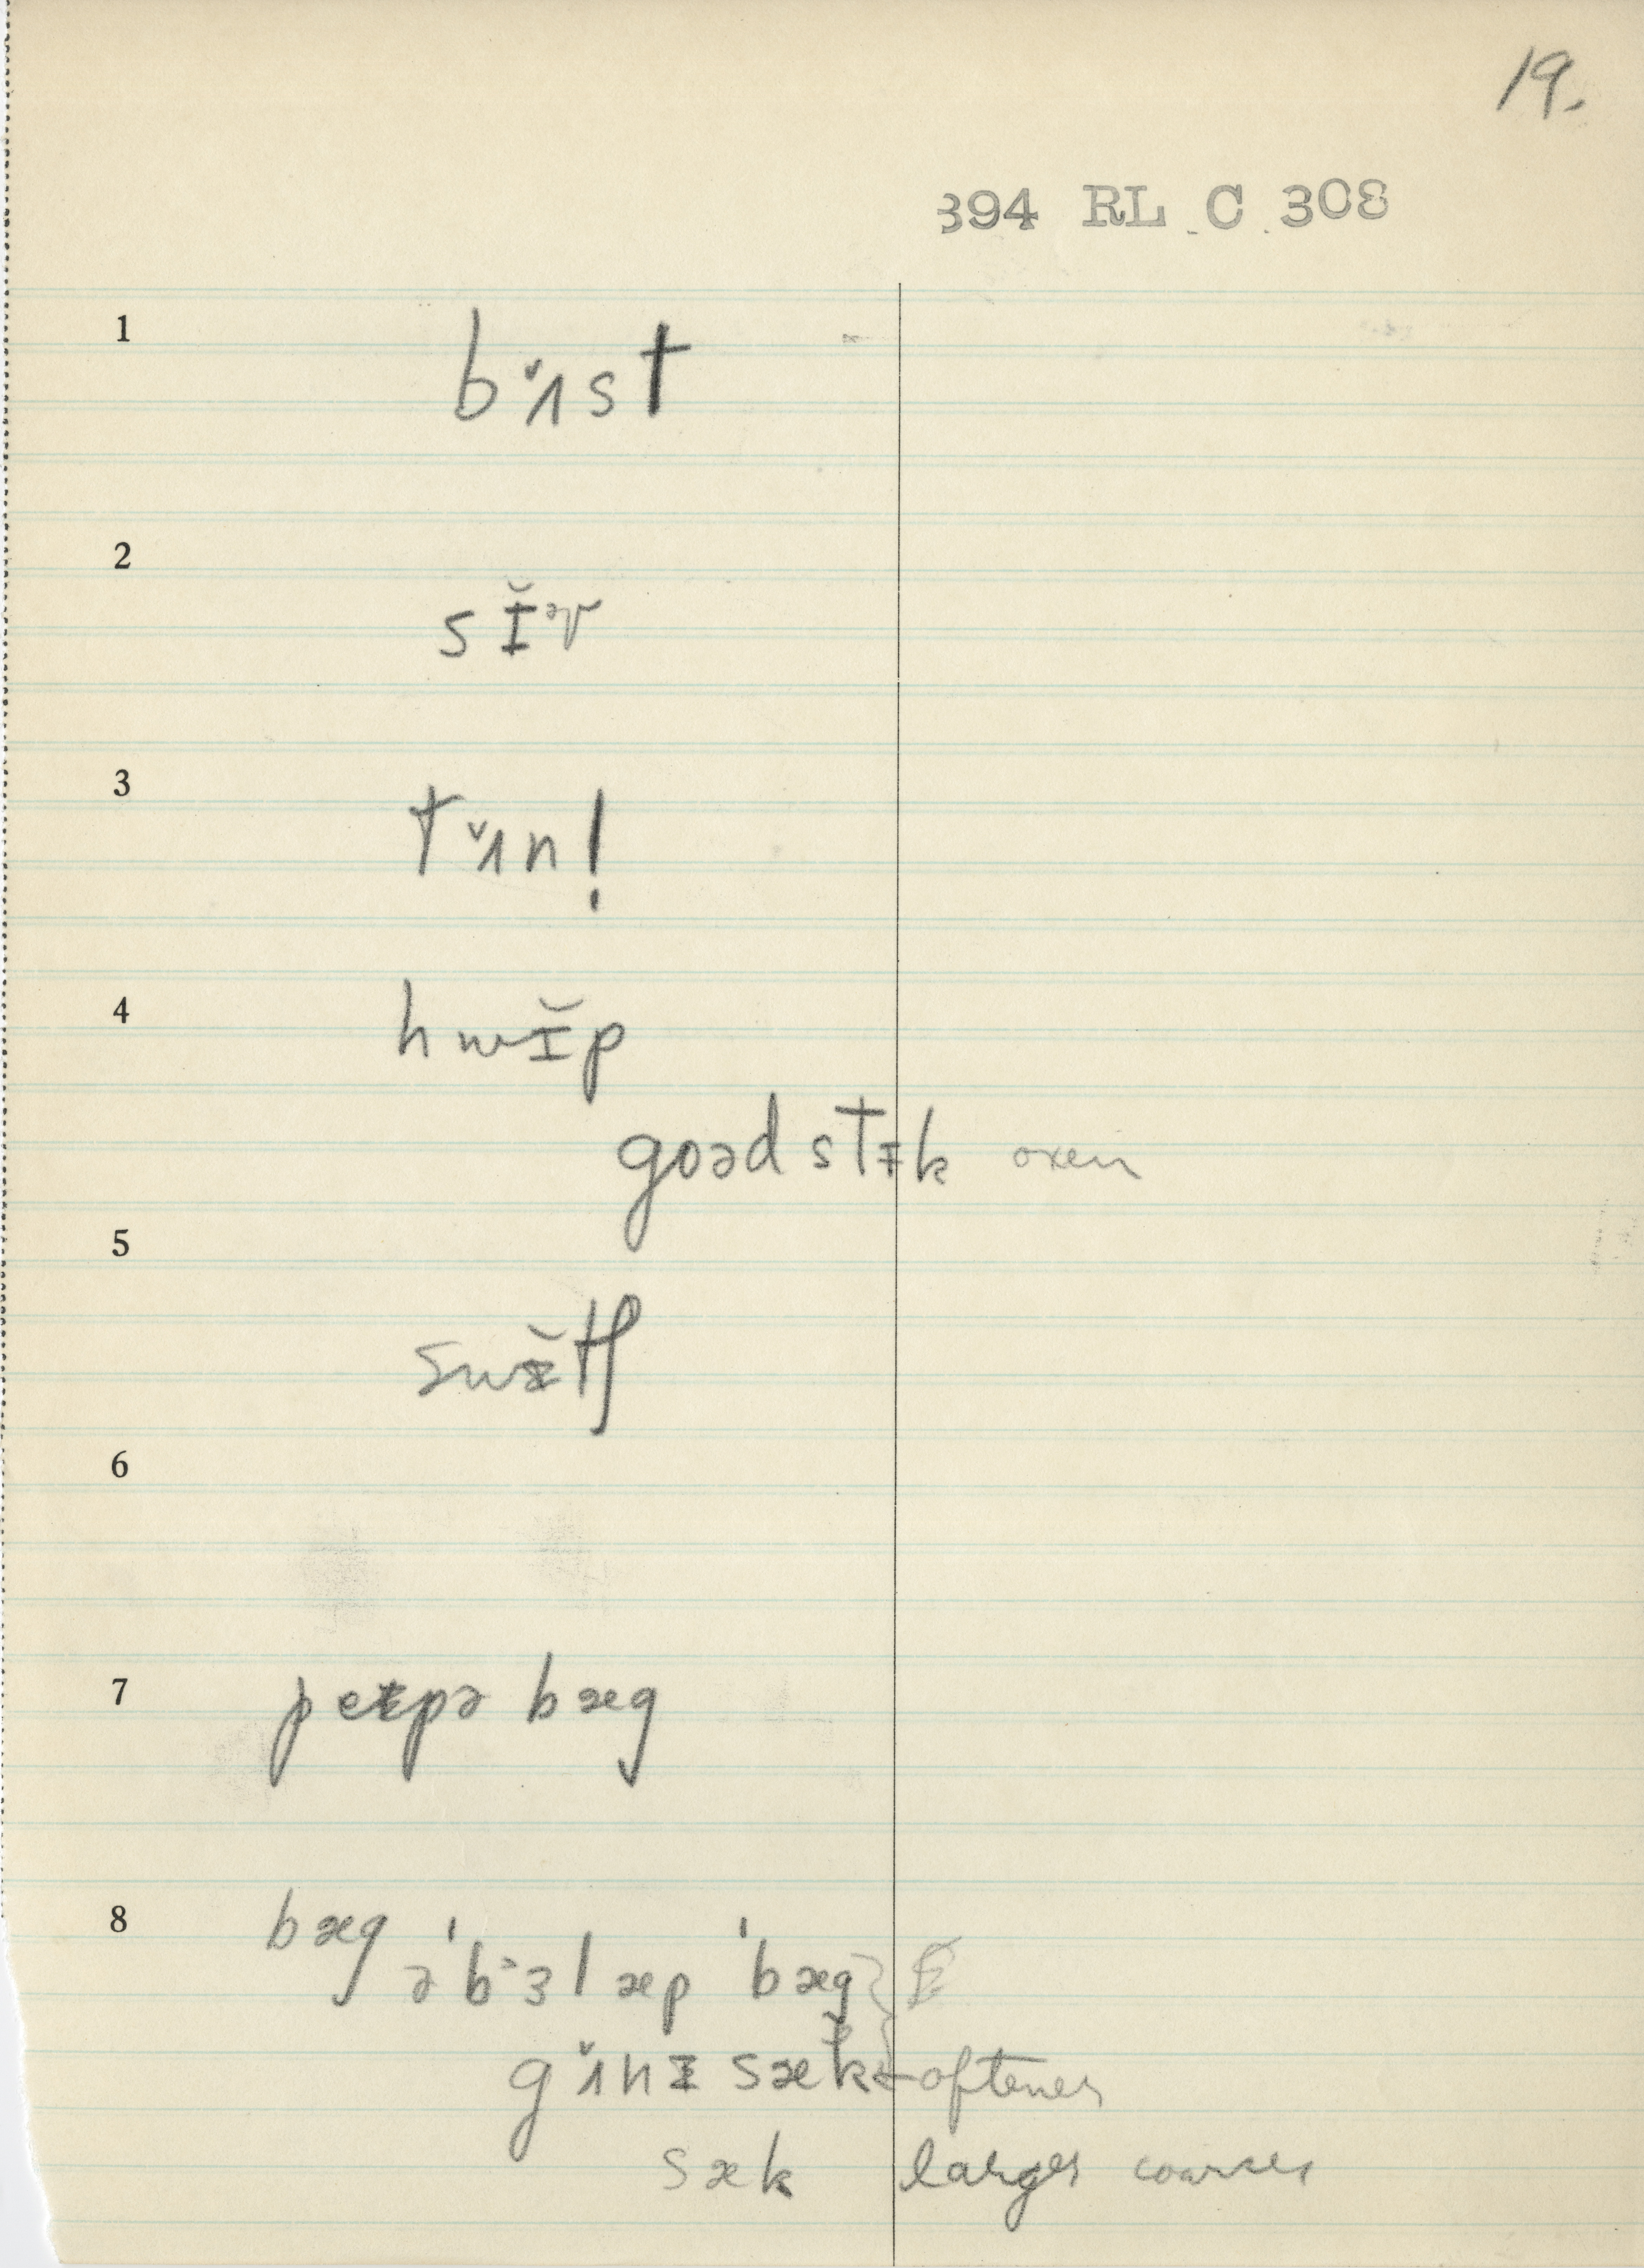 19.
394 RL C 308
1
bɪ̆ʌst
2
sɪ̆ᵊr
3
tɪ̆ʌn!
4
hwɪ̆p
goəd stɪk oxen
5
swɪ̆tʃ
6
7
peɪpə bæg
8
bæg
ə'bɜlæp 'bæg
gʌnɪ sæk oftener
sæk larger coarser